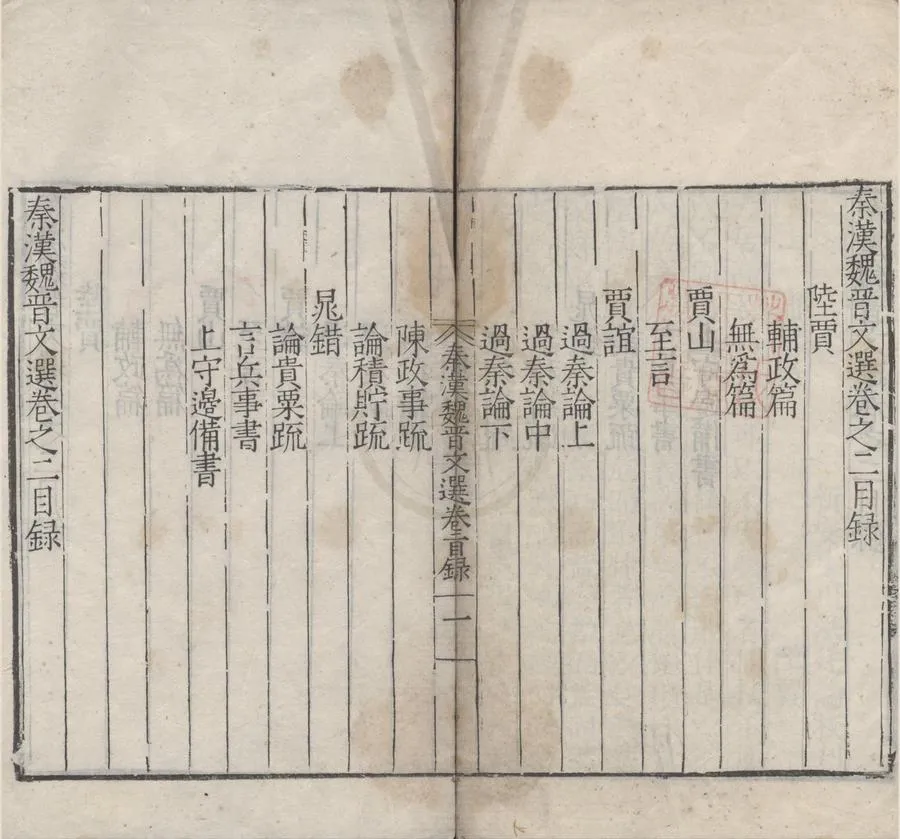 秦漢魏晋文選卷之二目録
陸賈
輔政篇
無爲篇
賈山
至言
賈誼
過秦論上
過秦論中
過秦論下
秦漢魏晋文選卷二目録
一
陳政事疏
論積貯疏
晁錯
論貴粟疏
言兵事書
上守邊備書
秦漢魏晋文選卷之二目録